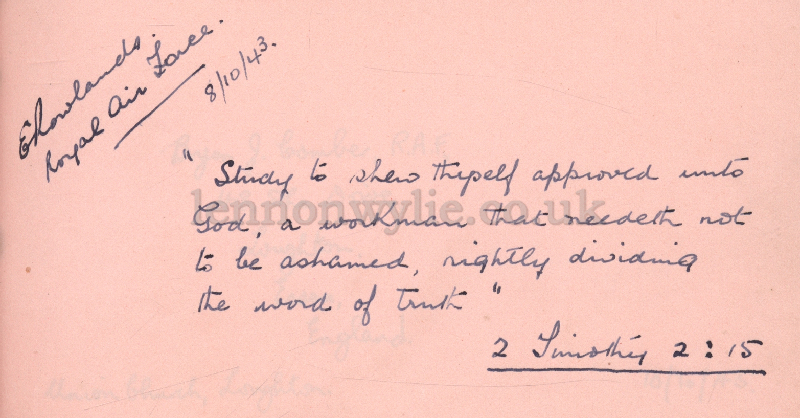 Royal Air Force.
8/10/43.
" Study to shew thyself approved unto
God, a workman that needeth not
to be ashamed, rightly dividing
the word of truth "
2 Timothy 2 : 15
lennonwylie.co.uk
England